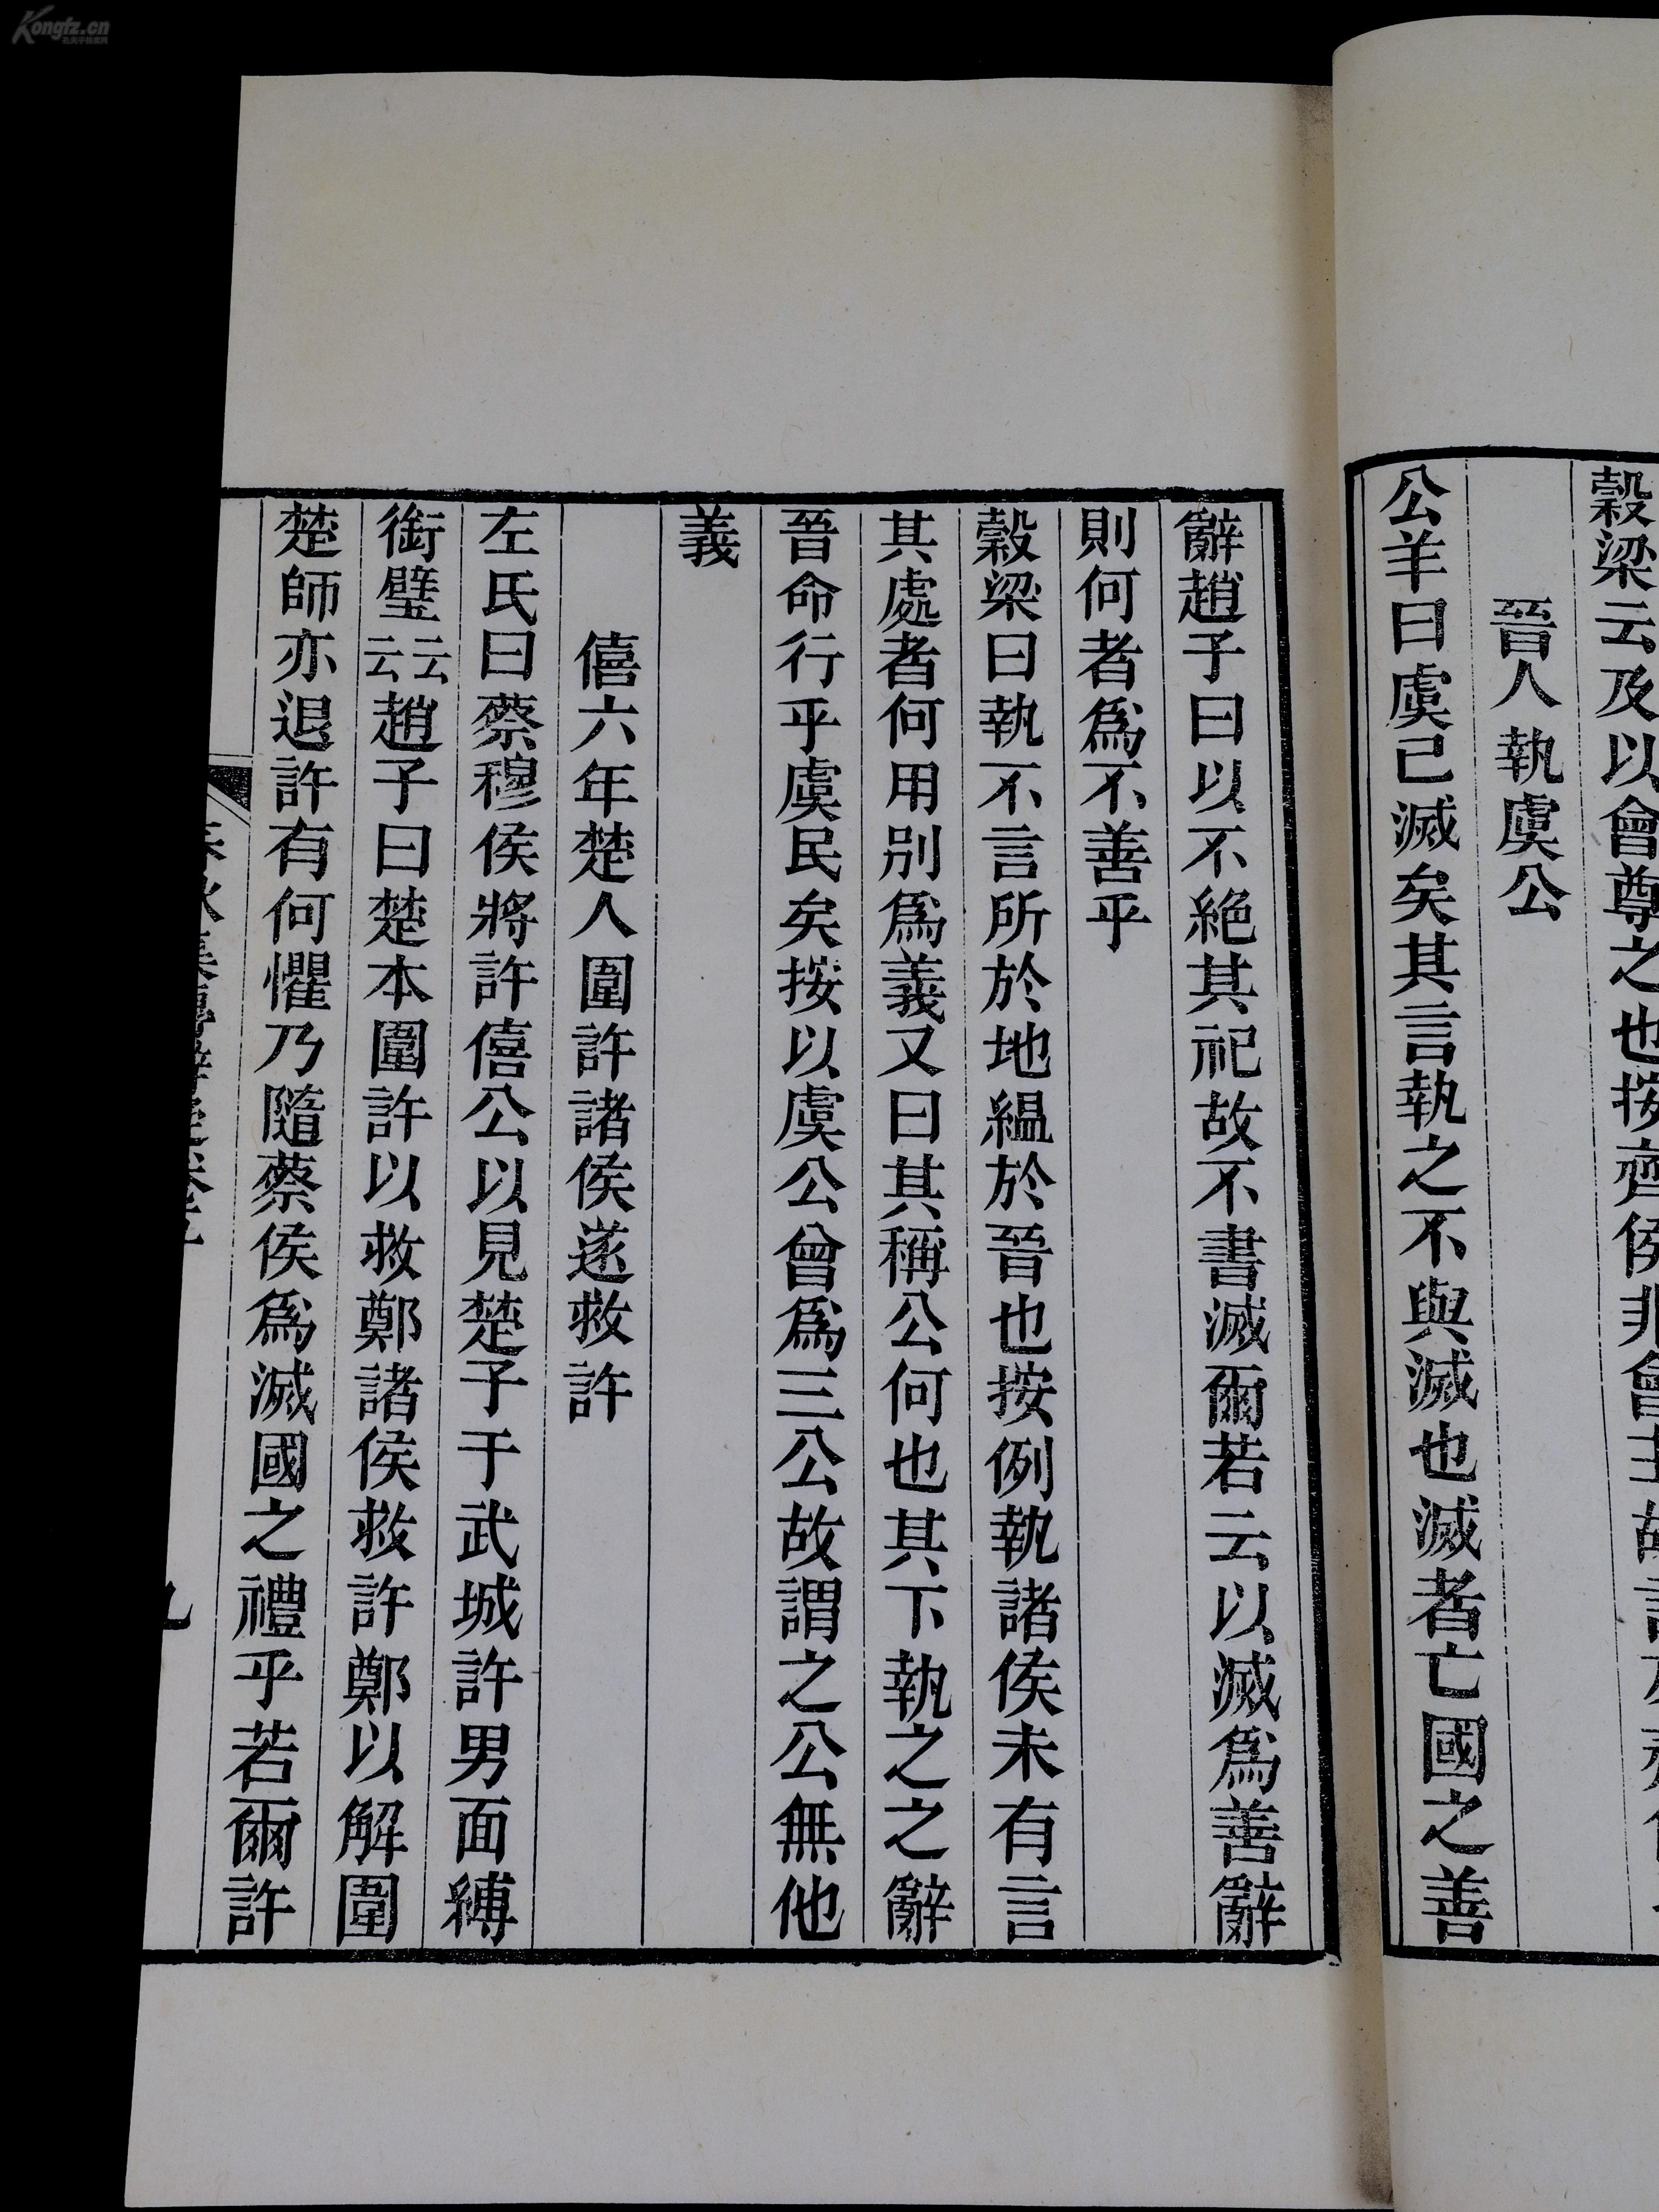 Kongfz.cn
穀梁云及以會尊之也按齊侯非會主故
晉人執虞公
公羊曰虞已滅矣其言執之不與滅也滅者亡國之善
辭趙子曰以不絕其祀故不書滅爾若云以滅爲善辭
則何者爲不善乎
穀梁曰執不言所於地緼於晉也按例執諸侯未有言
其處者何用別爲義又曰其稱公何也其下執之之辭
晉命行乎虞民矣按以虞公曾爲三公故謂之公無他
義
僖六年楚人圍許諸侯遂救許
左氏曰蔡穆侯將許僖公以見楚子于武城許男面縛
銜璧云云趙子曰楚本圍許以救鄭諸侯救許鄭以解圍
楚師亦退許有何懼乃隨蔡侯爲滅國之禮乎若爾許